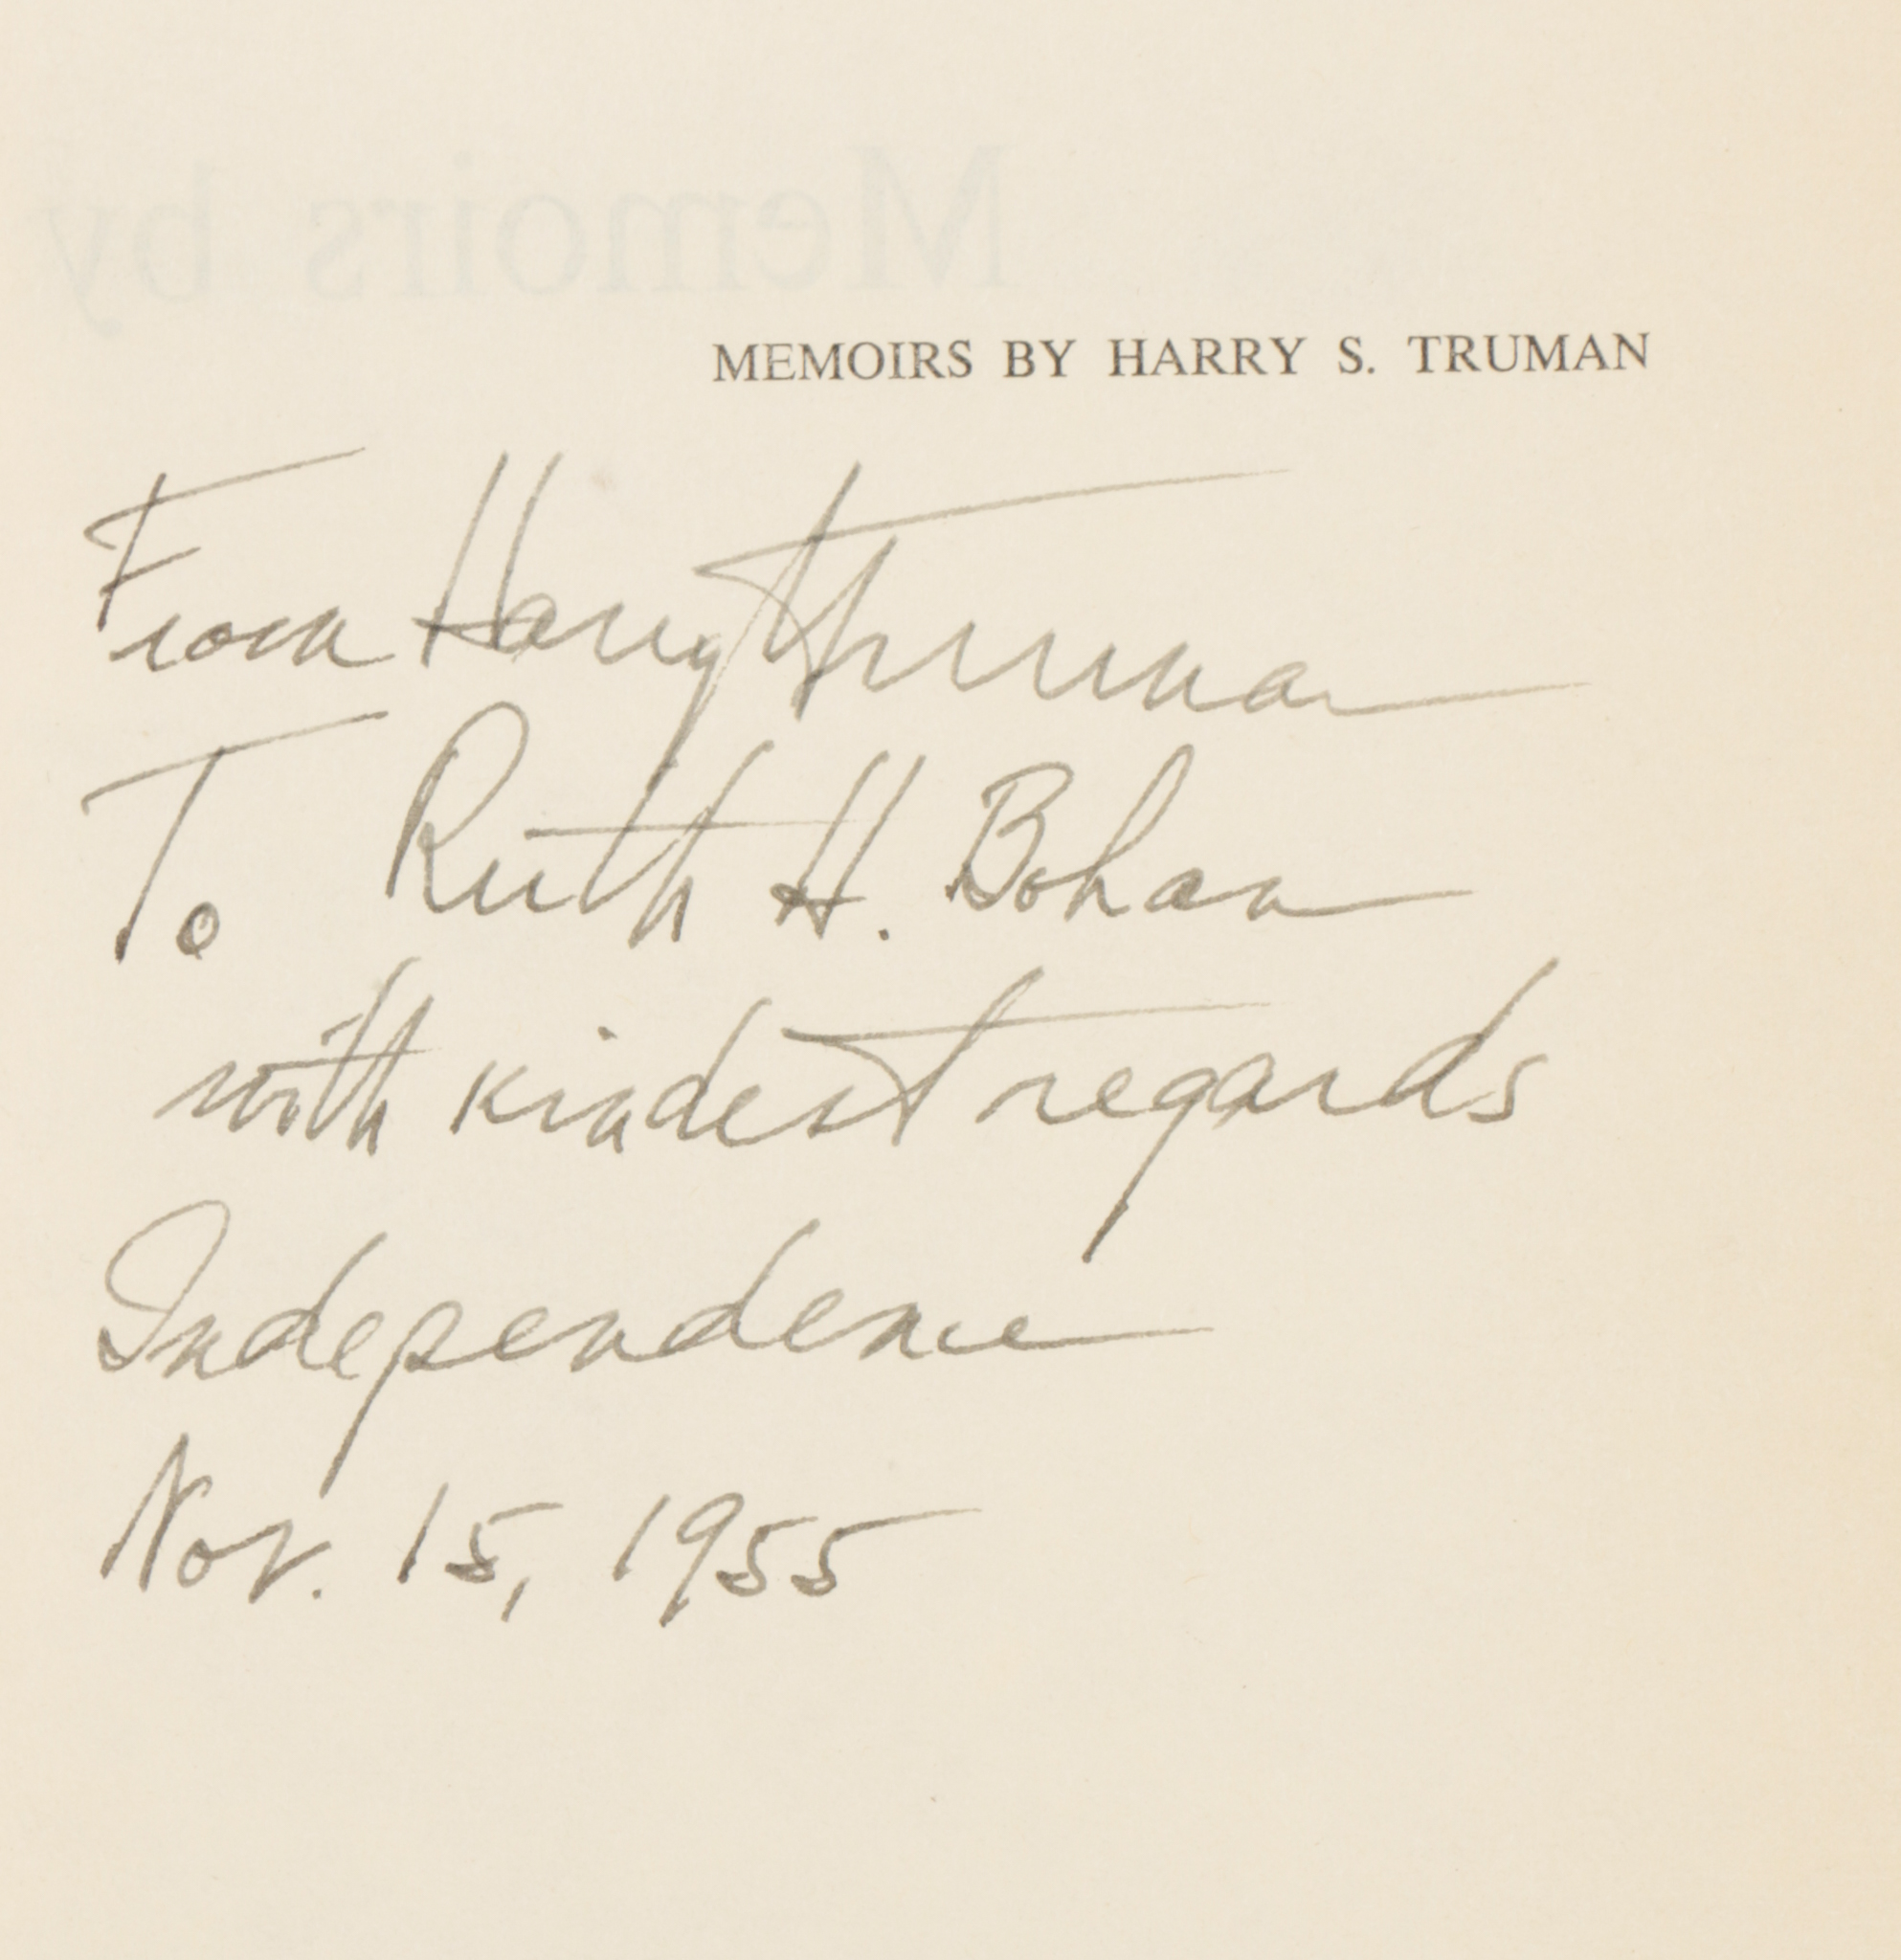 Memoirs by
MEMOIRS BY HARRY S. TRUMAN
From Harry Truman
To Ruth H. Bohan
with kindest regards
Independence
Nov. 15, 1955